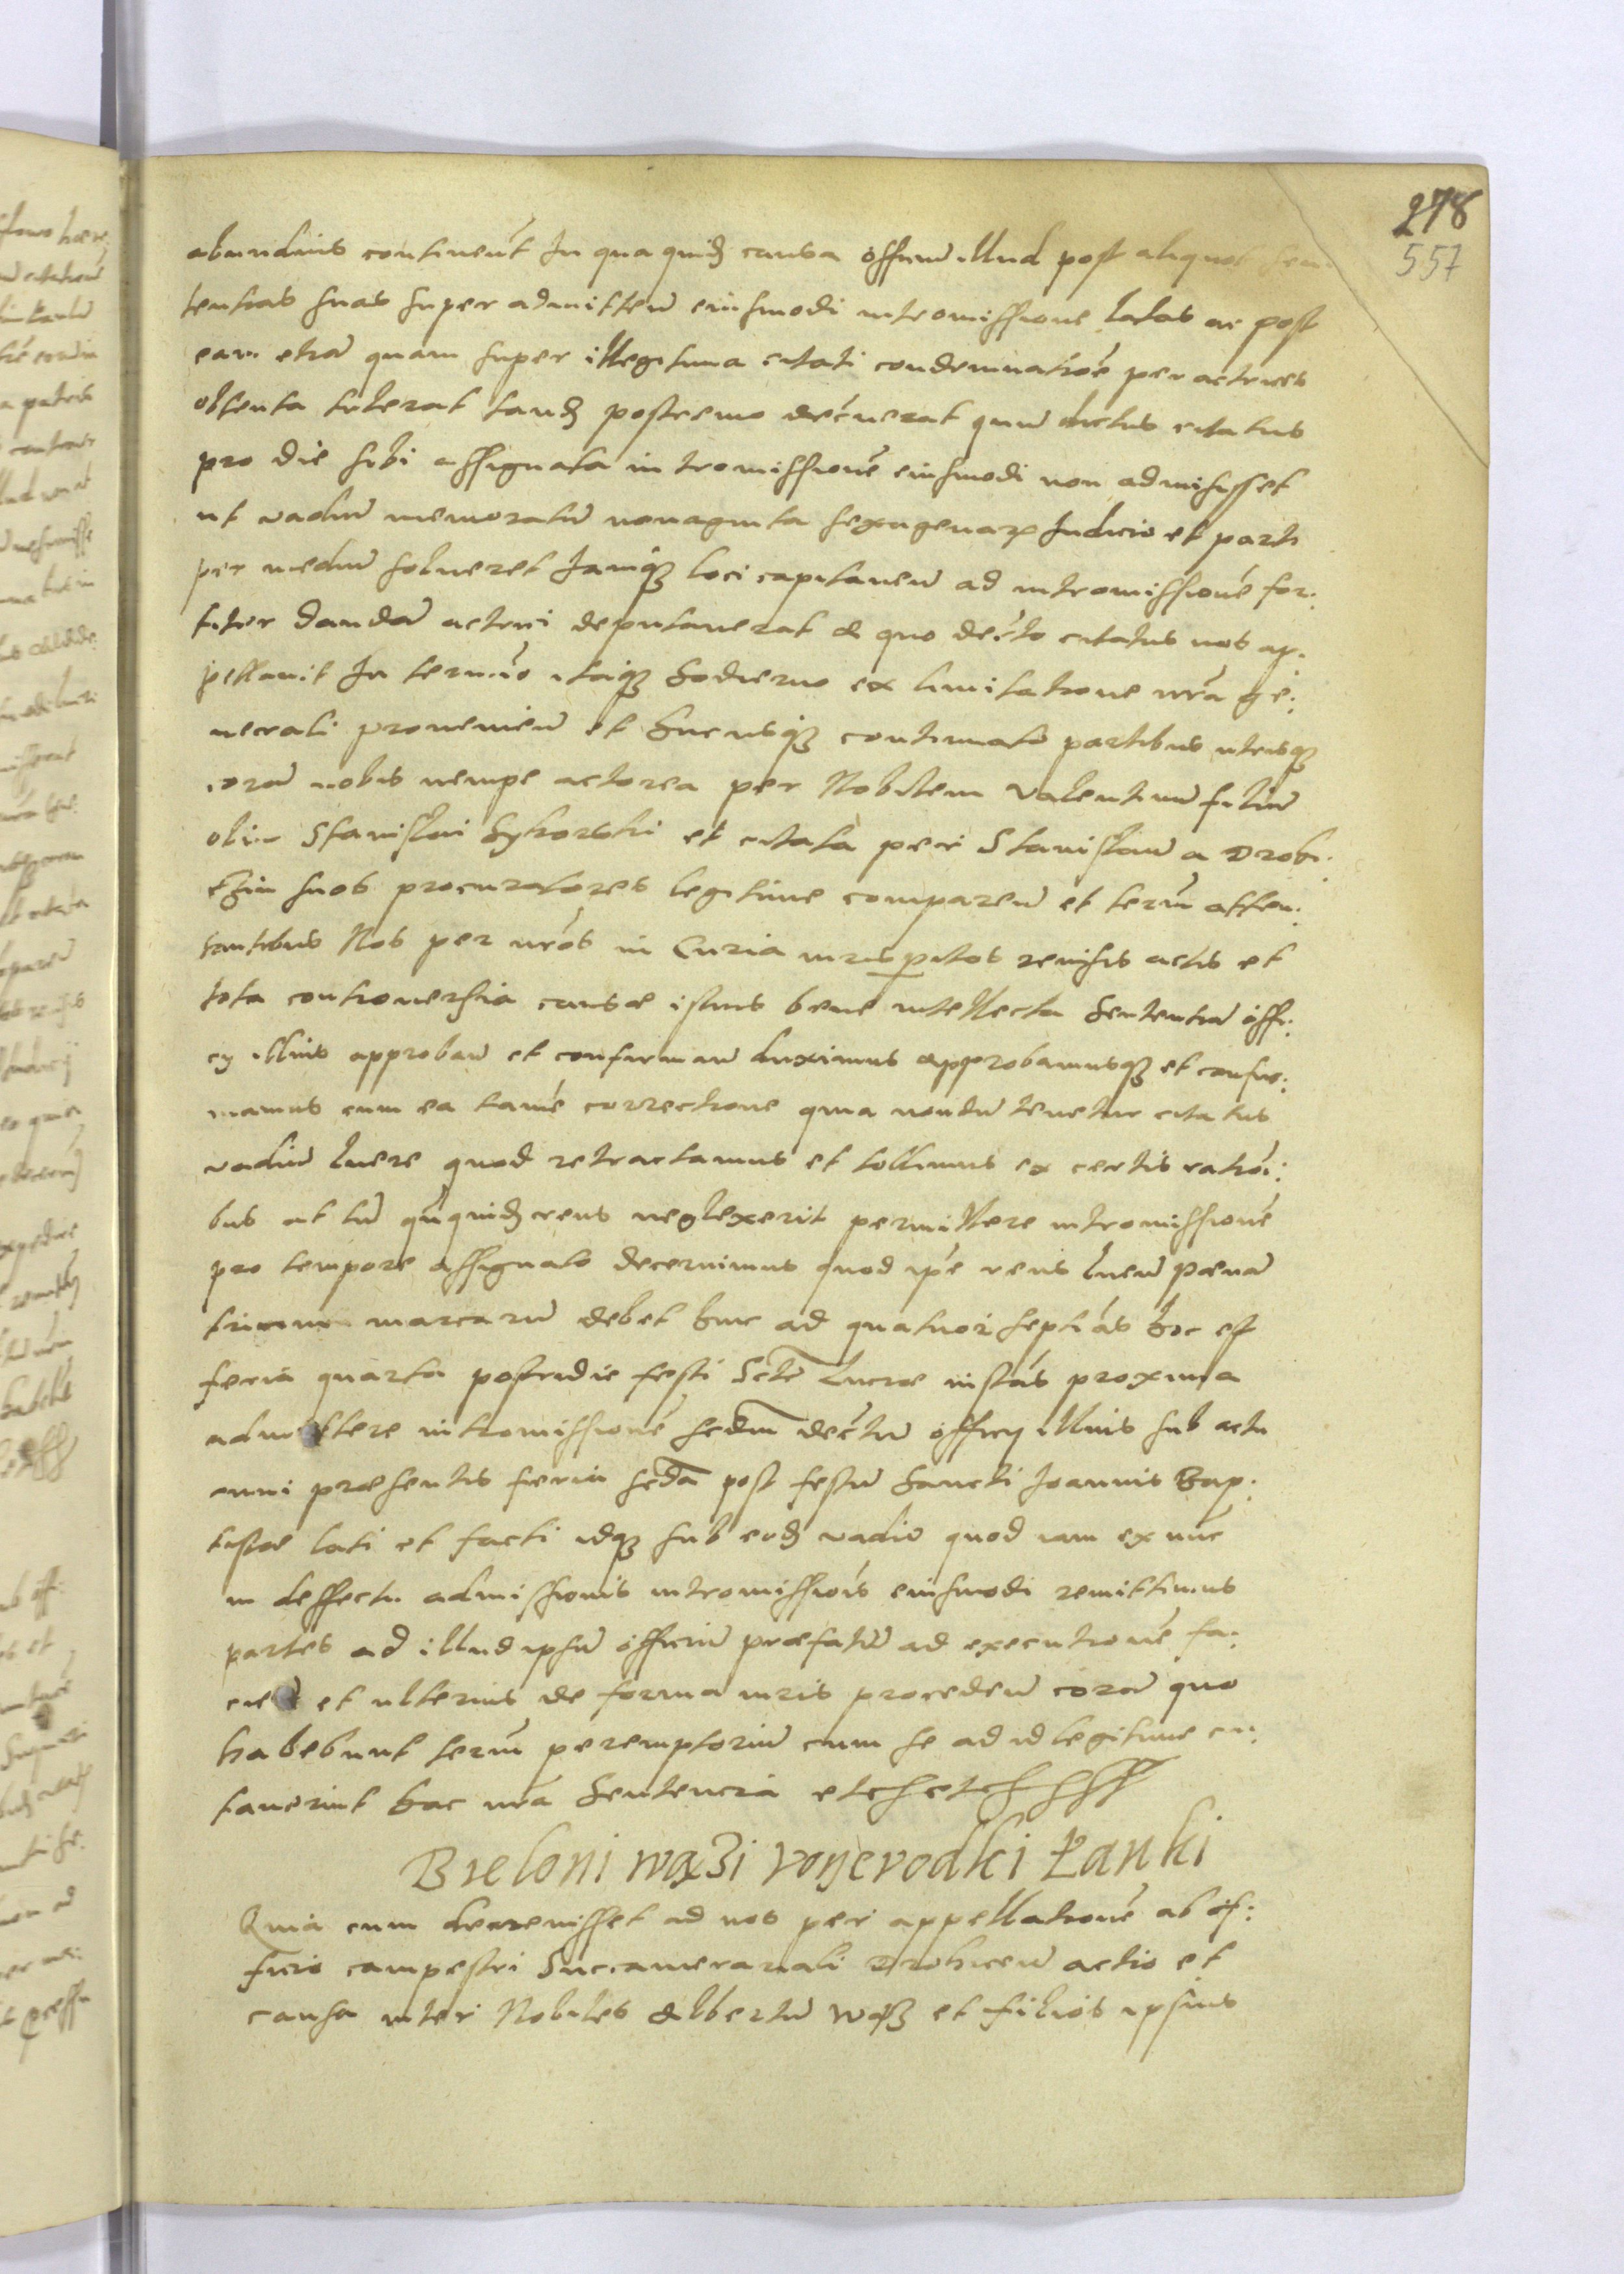 278
557
abundius continent In qua quid causa offium illud post aliquot sen:
tentias suas super admitten eiusmodi intromissione latas ac post
eam etia quam super illegitima citati condemnatioe per actrices
obtenta tulerat tand postremo decreverat quum dictus citatus
pro die sibi assignata intromissione eiusmodi non admisisset
ut vadiu memoratu nonaginta sexagenar Iudicio et parti
per mediu solueret Iamq loci capitaneu ad intromissione for:
titer danda actrici deputauerat a quo decto citatus nos ap:
pellauit In termio itaq hodierno ex limitatione nra ge:
nerali provenien et hucusq continuato partibus utrisq
cora nobis nempe actorea per Nobilem Valentinu filiu
olim Stanislai Sykorski et citata per Stanislau a Drob:
suos procuratores legitime comparen et termu atten:
tantibus Nos per nros in Curia iurisperitos revisis actis et
tota controuersia causæ istius bene intellecta Sententia offi:
cÿ illius approban et confirman duximus approbamusq et confir:
mamus cum ea tame correctione quia nondu tenetur citatus
vadiu luere quod retractamus et tollimus ex certis ratioi:
bus at tu reus neglexerit permittere intromissione
pro tempore assignato decernimus quod ipe reus luen pæna
trium marcaru debet huc ad quatuor septias hoc est
feria quarta postridie festi Scte Luciæ instas proxima
admittere intromissione scdm dectu officÿ illius sub actu
anni præsentis feria scda post festu Sancti Joannis Bap:
tistæ lati et facti idq sub eod vadio quod iam ex nuc
in deffectu admissionis intromissiois eiusmodi remittimus
partes ad illud ipsu officiu præfatu ad executione fa:
cien et ulterius de forma iuris proceden cora quo
habebunt termu peremptoriu cum se ad id legitime ci:
tauerint hac nra Sentencia etc etc
Bieloni wążi voyevodki Łanki
Quia cum deuenisset ad nos per appellatione ab of:
ficio campestri Succamerariali Drohicen actio et
causa inter Nobiles Albertu Wąß et filios ipsius